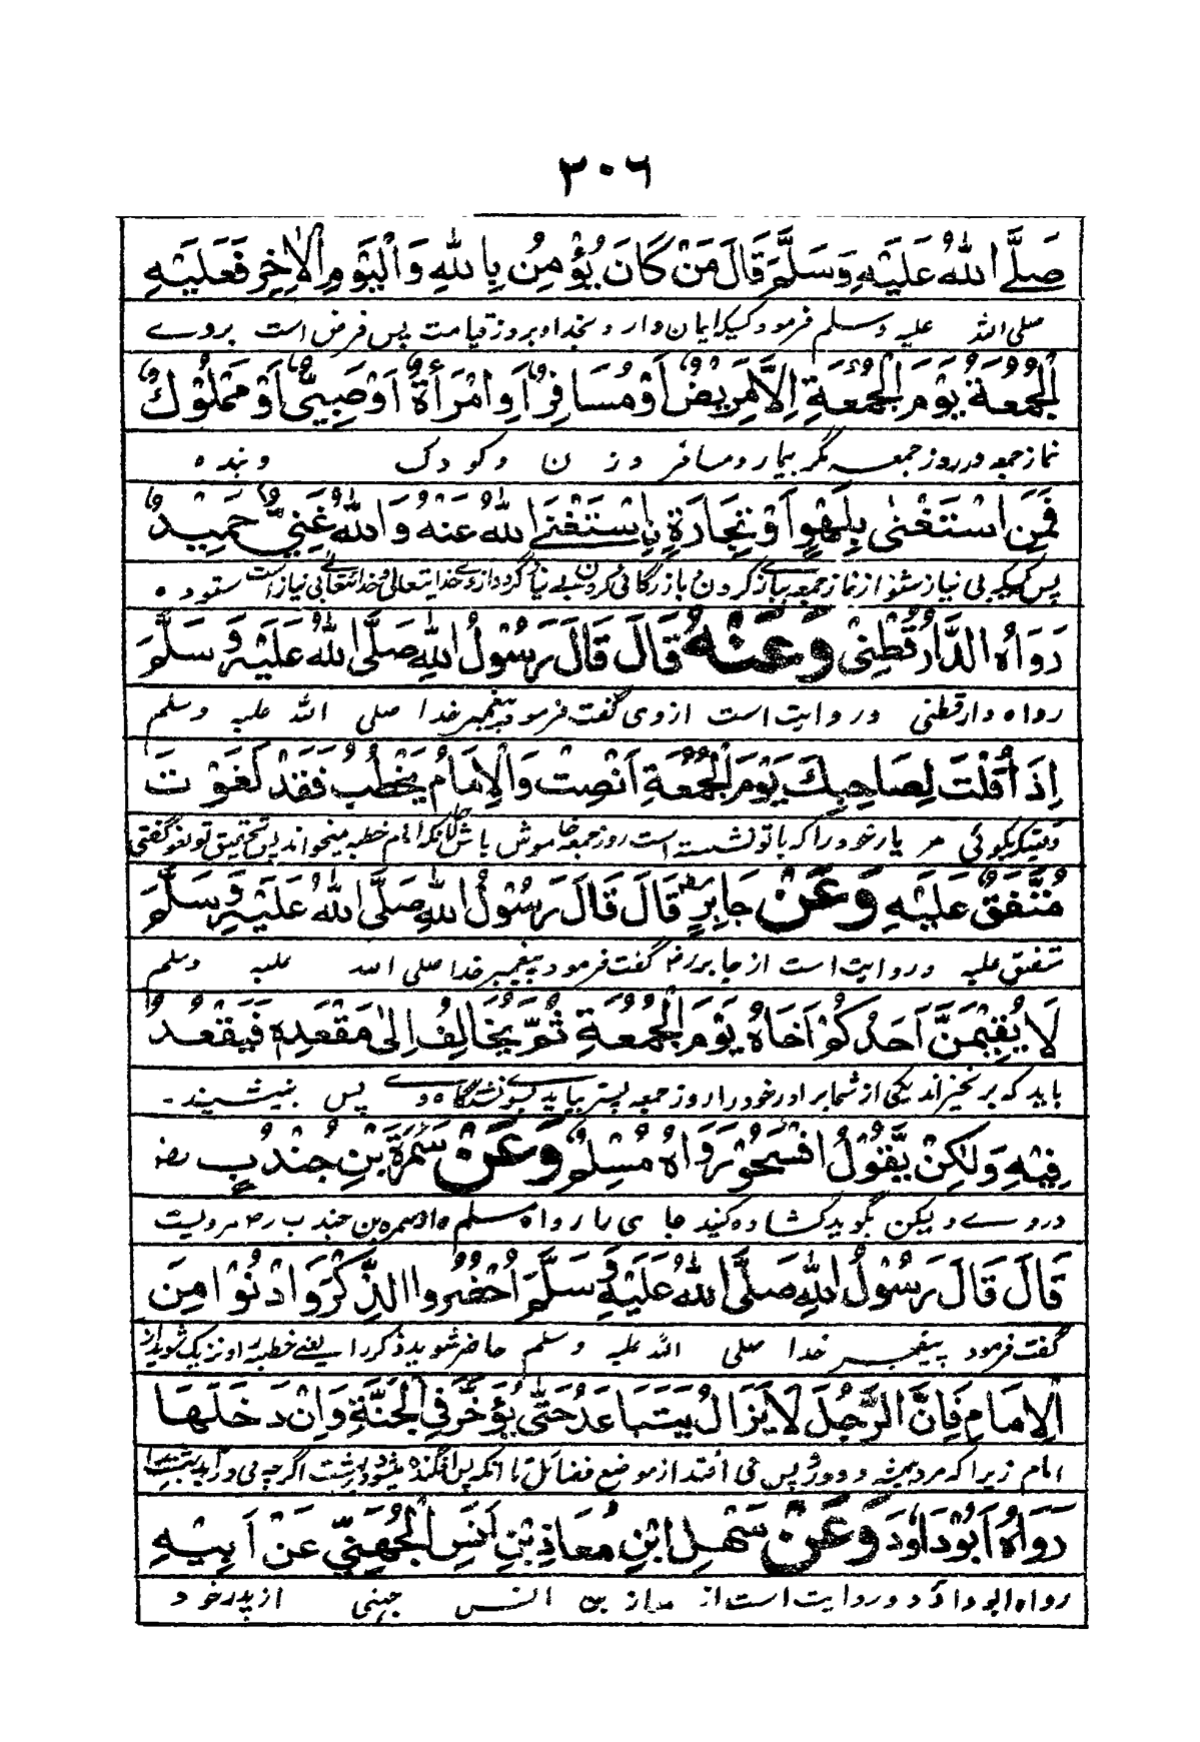 ۳۰۶
صَلَّے اللهُ عَلَيْهِ وَسَلَّمَ قَالَ مَنْ كَانَ يُؤْمِنُ بِاللهِ وَالْيَوْمِ الْاٰخِرِ فَعَلَيْهِ
صلی الله علیه وسلم فرمود کسیکه ایمان دارد بخدا و بروز قیامت پس فرض است بروے
الْجُمُعَةُ يَوْمَ الْجُمُعَةِ اِلَّا مَرِيْضٌ اَوْ مُسَافِرٌ اَوِ امْرَأَةٌ اَوْ صَبِيٌّ اَوْ مَمْلُوْكٌ
نماز جمعه در روز جمعه مگر بیمار و مسافر و زن و کودک و بنده
فَمَنِ اسْتَغْنٰى بِلَهْوٍ اَوْ تِجَارَةٍ نِ اسْتَغْنَے اللهُ عَنْهُ وَاللهُ غَنِيٌّ حَمِيْدٌ
پس کسیکه بی نیاز شود از نماز جمعه بازی کردن بازرگانی کردن بے نیاز گردد از وے خدایتعالی و خدایتعالی بی نیاز است ستوده
رَوَاهُ الدَّارُقُطْنِيْ وَعَنْهُ قَالَ قَالَ رَسُوْلُ اللهِ صَلَّى اللهُ عَلَيْهِ وَسَلَّمَ
رواه دارقطنی و روایت است از وی گفت فرمود پیغمبر خدا صلی الله علیه وسلم
اِذَا قُلْتَ لِصَاحِبِكَ يَوْمَ الْجُمُعَةِ اَنْصِتْ وَالْاِمَامُ يَخْطُبُ فَقَدْ لَغَوْتَ
وقتیکه بگوئی مر یار خود را که با تو نشسته است روز جمعه خاموش باش حالانکه امام خطبه میخواند پس تحقیق تو لغو گفتی
مُتَّفَقٌ عَلَيْهِ وَعَنْ جَابِرٍ قَالَ قَالَ رَسُوْلُ اللهِ صَلَّى اللهُ عَلَيْهِ وَسَلَّمَ
متفق علیه و روایت است از جابر رض گفت فرمود پیغمبر خدا صلی الله علیه وسلم
لَا يُقِيْمَنَّ اَحَدُكُمْ اَخَاهُ يَوْمَ الْجُمُعَةِ ثُمَّ يُخَالِفُ اِلٰى مَقْعَدِهٖ فَيَقْعُدُ
باید که برنخیزاند یکی از شما برادر خود را روز جمعه پستر بیاید بسوے نشستگاه وے پس بنشیند
فِيْهِ وَلٰكِنْ يَّقُوْلُ افْسَحُوْا رَوَاهُ مُسْلِمٌ وَعَنْ سَمُرَةَ بْنِ جُنْدُبٍ رض
در وے و لیکن بگوید کشاده کنید جای را رواه مسلم و از سمره بن جندب رض مرویست
قَالَ قَالَ رَسُوْلُ اللهِ صَلَّى اللهُ عَلَيْهِ وَسَلَّمَ اُحْضُرُوا الذِّكْرَ وَادْنُوْا مِنَ
گفت فرمود پیغمبر خدا صلی الله علیه وسلم حاضر شوید ذکر را یعنے خطبه را و نزدیک شوید از
الْاِمَامِ فَاِنَّ الرَّجُلَ لَا يَزَالُ يَتَبَاعَدُ حَتّٰى يُؤَخَّرَ فِي الْجَنَّةِ وَاِنْ دَخَلَهَا
امام زیرا که مرد همیشه دور و پس می افتد از موضع فضائل تا آنکه پس افگنده میشود در بهشت اگرچه می در آید
رَوَاهُ اَبُوْ دَاوٗدَ وَعَنْ سَهْلِ ابْنِ مُعَاذِ بْنِ اَنَسِ الْجُهَنِيِّ عَنْ اَبِيْهِ
رواه ابو داؤد و روایت است از معاذ بن انس جهنی از پدر خود